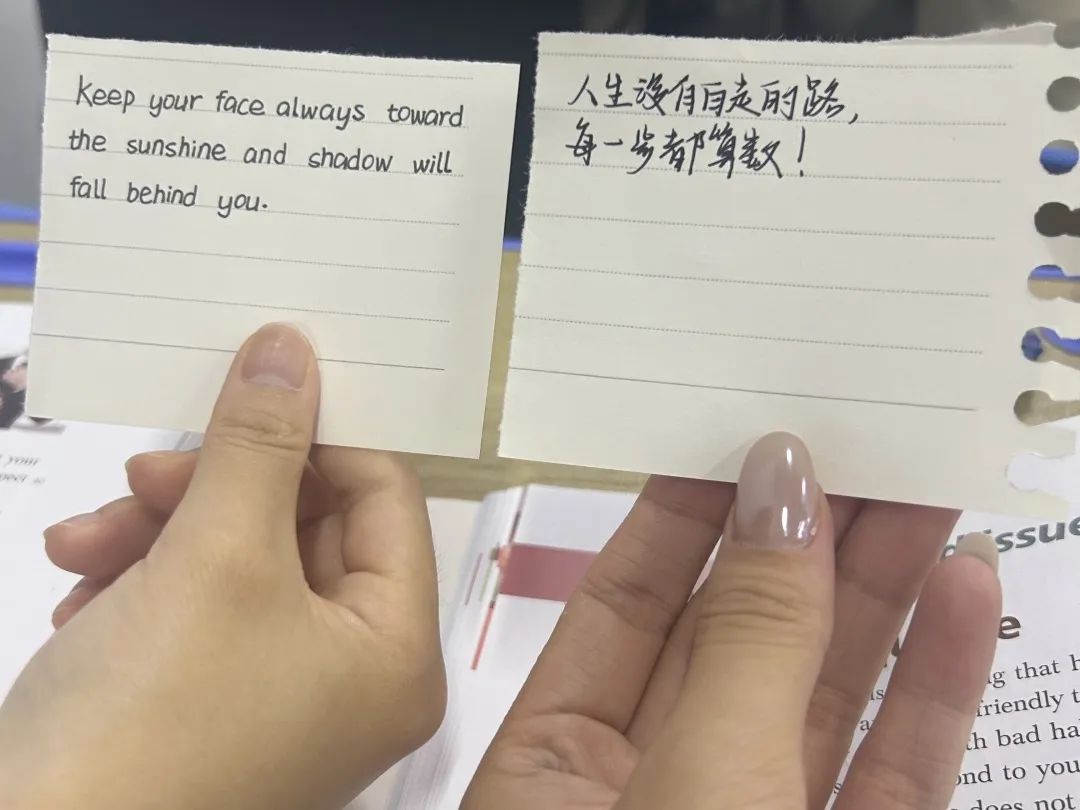 Keep your face always toward
the sunshine and shadow will
fall behind you.
人生没有白走的路,
每一步都算数!
your
issue
e
ng that
friendly t
th bad ha
ond to you
does not